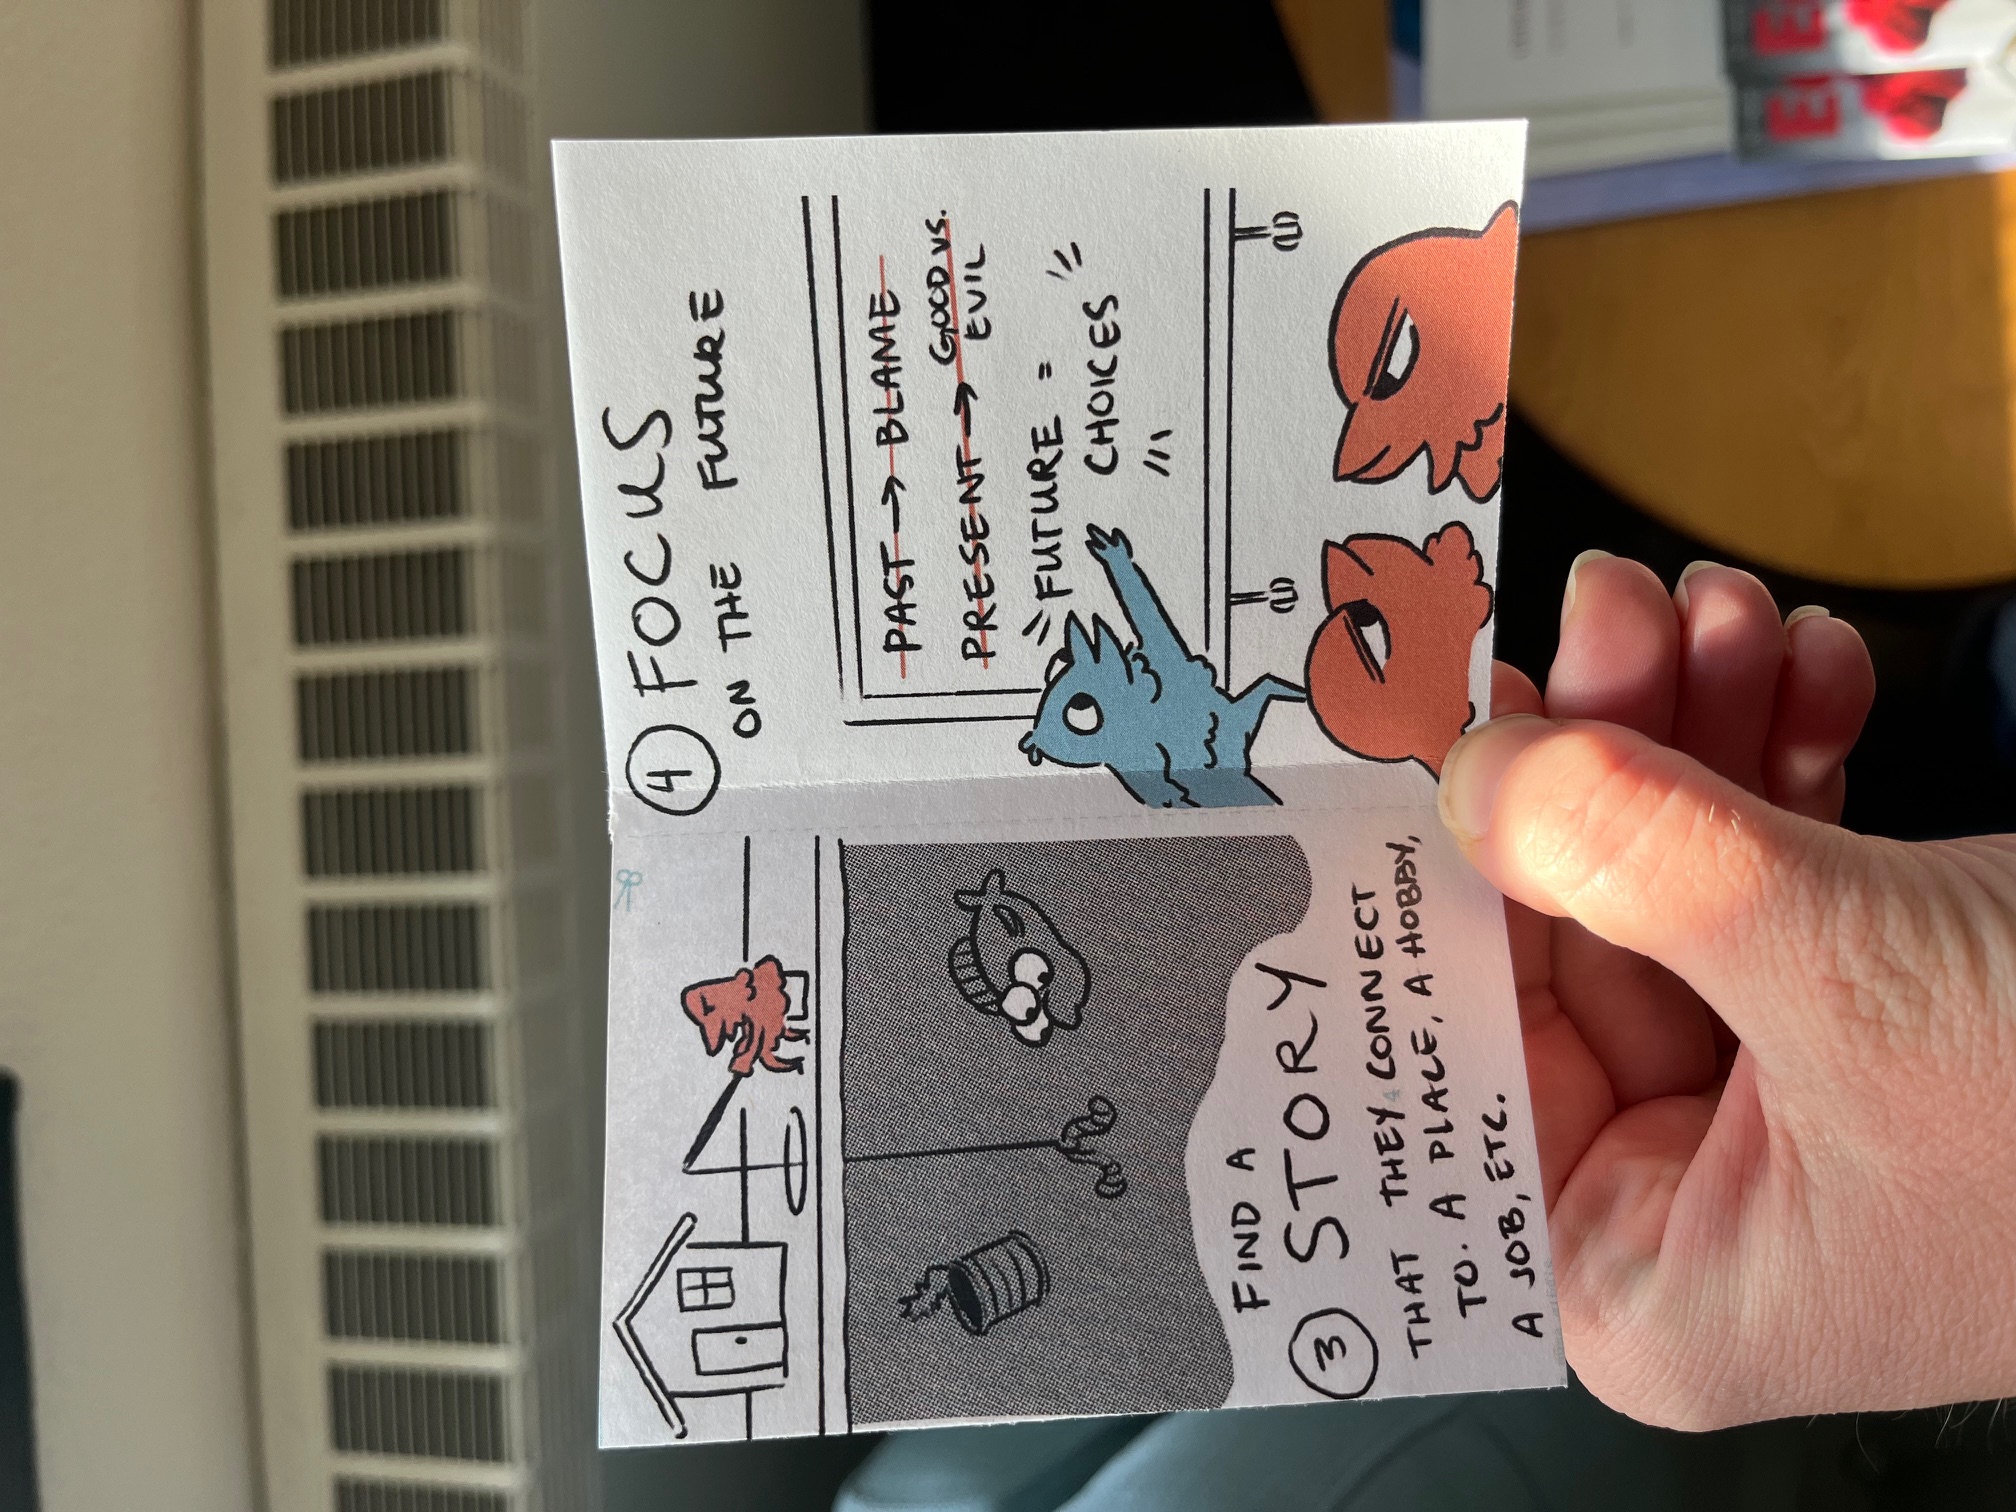 FIND A
3 STORY
THAT THEY CONNECT
TO. A PLACE, A HOBBY,
A JOB, ETC.
4 FOCUS
ON THE FUTURE
PAST → BLAME
PRESENT → GOOD VS.
EVIL
FUTURE =
CHOICES